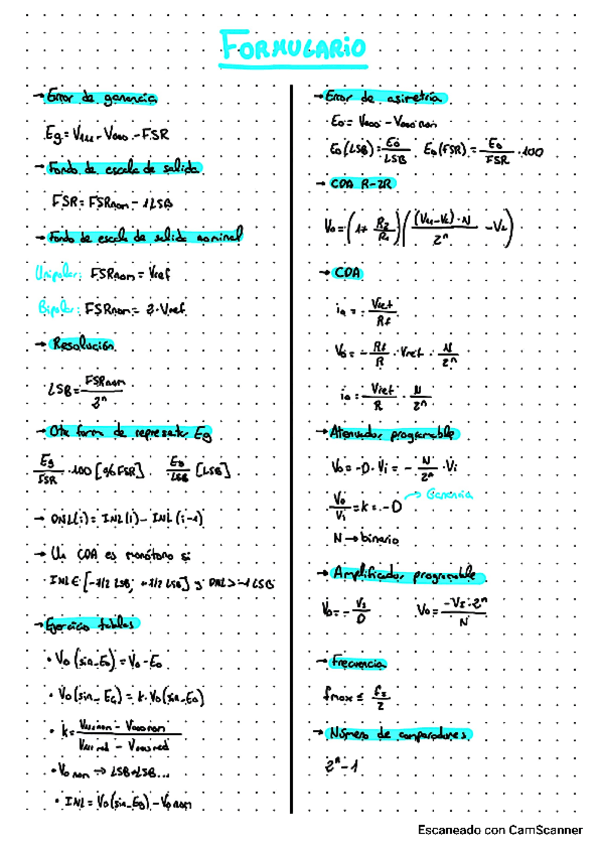 FORMULARIO
→ Error de ganancia
Eg = V111 - V000 - FSR
→ Fondo de escala de salida
FSR = FSRnom - 1LSB
→ Fondo de escala de salida nominal
Unipolar: FSRnom = Vref
Bipolar: FSRnom = 2·Vref
→ Resolución
LSB = FSRnom / 2ⁿ
→ Otra forma de representar Eg
Eg/FSR · 100 [% FSR] Eg/LSB [LSB]
→ DNL(i) = INL(i) - INL(i-1)
→ Un CDA es monótono si
INL ∈ [-1/2 LSB, +1/2 LSB] y DNL > -1 LSB
→ Ejercicio tablas
• Vo (sin_Eo) = Vo - Eo
• Vo (sin_Eg) = k · Vo (sin_Eo)
• k = (V111 nom - V000 nom) / (V111 red - V000 red)
• Vo nom → LSB+LSB...
• INL = Vo (sin_Eg) - Vo nom
→ Error de asimetría
Eo = V000 - V000 nom
Eo (LSB) = Eo/LSB Eo (FSR) = Eo/FSR · 100
→ CDA R-2R
Vo = (1 + R2/R1) ((VH - VL) · N / 2ⁿ - VL)
→ CDA
Vo = - Rf/R · Vref · N/2ⁿ
io = Vref/R · N/2ⁿ
→ Atenuador programable
Vo = -D · Vi = - N/2ⁿ · Vi
Vo/Vi = k = -D → Ganancia
N → binario
→ Amplificador programable
Vo = - Vi/D Vo = -Vi · 2ⁿ / N
→ Frecuencia
fmax ≤ fs/2
→ Número de comparadores
2ⁿ - 1
Escaneado con CamScanner